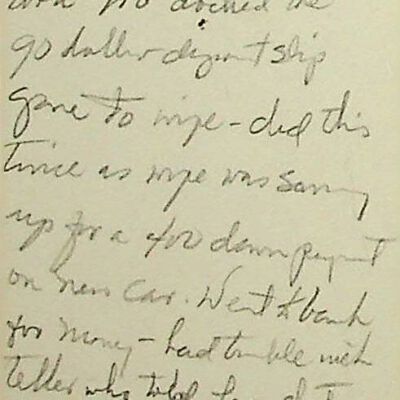 the
90 dollar deposit slip
gave to wife - did this
twice as wife was saving
up for a 400 down payment
on new car. Went to bank
for money - had trouble with
Teller who told